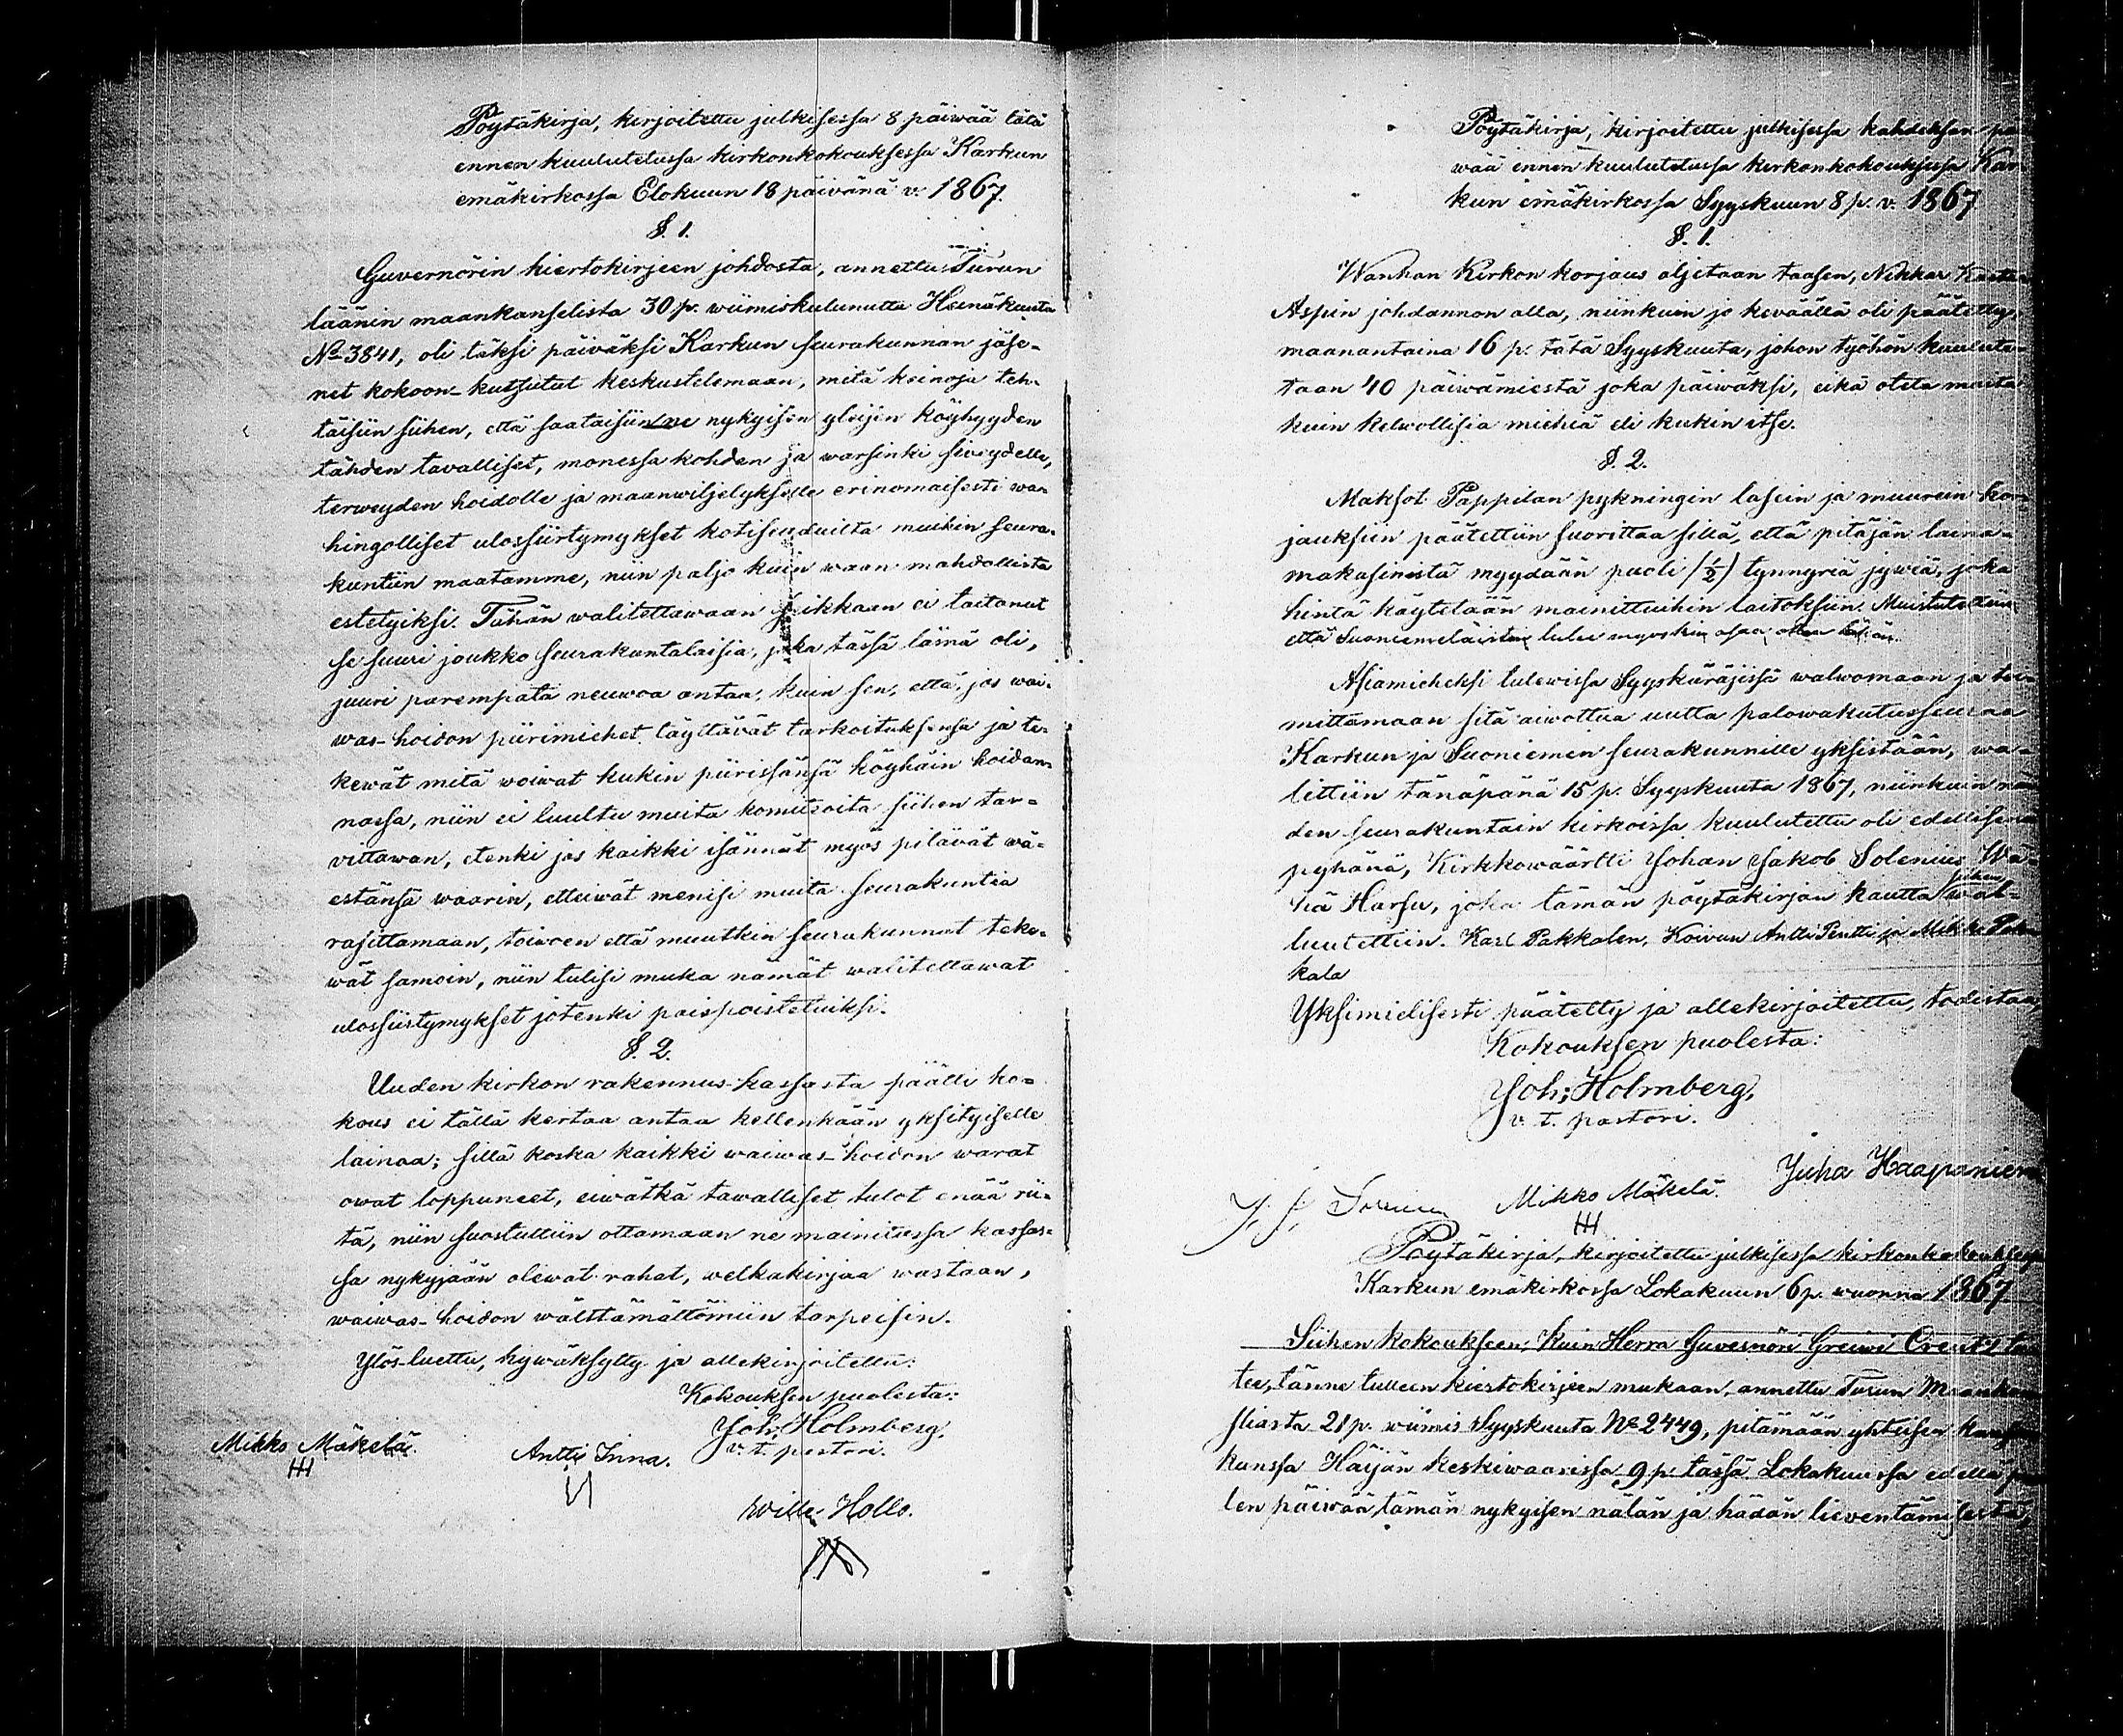 Pöytäkirja, kirjoitettu julkisessa 8 päiwää tätä
ennen kuulutetussa kirkonkokouksessa Karkun
emäkirkossa Elokuun 18 päivänä v. 1867.
§. 1.
Guvernörin kiertokirjeen johdosta, annettu Turun
läänin maankanselista 30 p. wiimiskulunutta Heinäkuuta
No 3841, oli täksi päiväksi Karkun seurakunnan jäse-
net kokoon-kutsutut keskustelemaan, mitä keinoja teh-
täisiin siihen, että saataisiin ne nykyisen yleisen köyhyyden
tähden tavalliset, monessa kohden ja warsinki siveydelle,
terweyden hoidolle ja maanwiljelykselle erinomaisesti wa-
hingolliset ulossiirtymykset kotiseuduilta muihin seura-
kuntiin maatamme, niin paljo kuin waan mahdollista
estetyiksi. Tähän walitettawaan seikkaan ei taitanut
se suuri joukko seurakuntalaisia, joka tässä läsnä oli,
juuri parempata neuwoa antaa, kuin sen, että, jos wai-
was-hoidon piirimiehet täyttävät tarkoituksensa ja te-
kewät mitä woiwat kukin piirissänsä köyhäin hoidan-
nassa, niin ei luultu muita komiteoita siihen tar-
vittawan, etenki jos kaikki isännät myös pitävät wä-
estänsä waarin, etteiwät menisi muita seurakuntia
rasittamaan, toiwoen että muutkin seurakunnat teke-
wät samoin, niin tulisi muka nämät walitettawat
ulossiirtymykset jotenki poispoistetuiksi.
§. 2.
Uuden kirkon rakennus-kassasta päätti ko-
kous ei tällä kertaa antaa kellenkään yksityiselle
lainaa; sillä koska kaikki waiwas-hoidon warat
owat loppuneet, eiwätkä tawalliset tulot enää rii-
tä, niin suostuttiin ottamaan ne mainitussa kassas-
sa nykyjään olewat rahat, welkakirjaa wastaan,
waiwas-hoidon wälttämättömiin tarpeisin.
Ylös-luettu, hywäksytty ja allekirjoitettu:
Kokouksen puolesta:
Joh: Holmberg.
v. t. pastori.
Mikko Mäkelä.
Antti Inna.
Wille Hollo.
Pöytäkirja, kirjoitettu julkisessa kahdeksan pä
wää ennen kuulutetussa kirkonkokouksessa Kar
kun emäkirkossa Syyskuun 8 p. v. 1867
§. 1.
Wanhan Kirkon korjaus aljetaan taasen, Nikkar
Aspin johdannon alla, niinkuin jo keväällä oli päätetty,
maanantaina 16 p. tätä Syyskuuta, johon työhön kuulute-
taan 40 päiwämiestä joka päiwäksi, eikä oteta muita
kuin kelwollisia miehiä eli kukin itse.
§. 2.
Maksot Pappilan pykningin lasein ja muurein kor-
jauksiin päätettiin suorittaa sillä, että pitäjän laina-
makasinista myydään puoli (½) tynnyriä jywiä, joka
hinta käytetään mainittuihin laitoksiin. Muistutettiin
että Suoniemeläisten tulee myöskin osaa ottaa tähän.
Asiamieheksi tulewissa Syyskäräjissä walwomaan ja toi-
mittamaan sitä aiwottua uutta palowakutusseuraa
Karkun ja Suoniemen seurakunnille yksistään, wa-
littiin tänäpänä 15 p. Syyskuuta 1867, niinkuin näi
den seurakuntain kirkoissa kuulutettu oli edellisenä
pyhänä, Kirkkowäärtti Johan Jakob Solenius Wä-
hä Harsu, joka tämän pöytäkirjan kautta siihen wal-
luutettiin. Karl Pakkalen, Koivun Antti Pentti ja Mikko Pak
kala
Yksimielisesti päätetty ja allekirjoitettu, todistaa,
Kokouksen puolesta:
Joh: Holmberg,
v. t. pastori.
Juha Haapaniem
Mikko Mäkelä.
J. J.
Pöytäkirja, kirjoitettu julkisessa kirkonkokouksessa
Karkun emäkirkossa Lokakuun 6 p. wuonna 1867
Siihen kokoukseen, Kuin Herra Guvernöri Greiwi Creutz
tee, tänne tulleen kiertokirjeen mukaan, annettu Turun Maankan
sliasta 21 p. wiimis Syyskuuta No 2449, pitämään yhteisen
kanssa Häijän keskiwaarissa 9 p. tässä Lokakuussa edellä
len päiwää tämän nykyisen nälän ja hädän lieventämisestä,